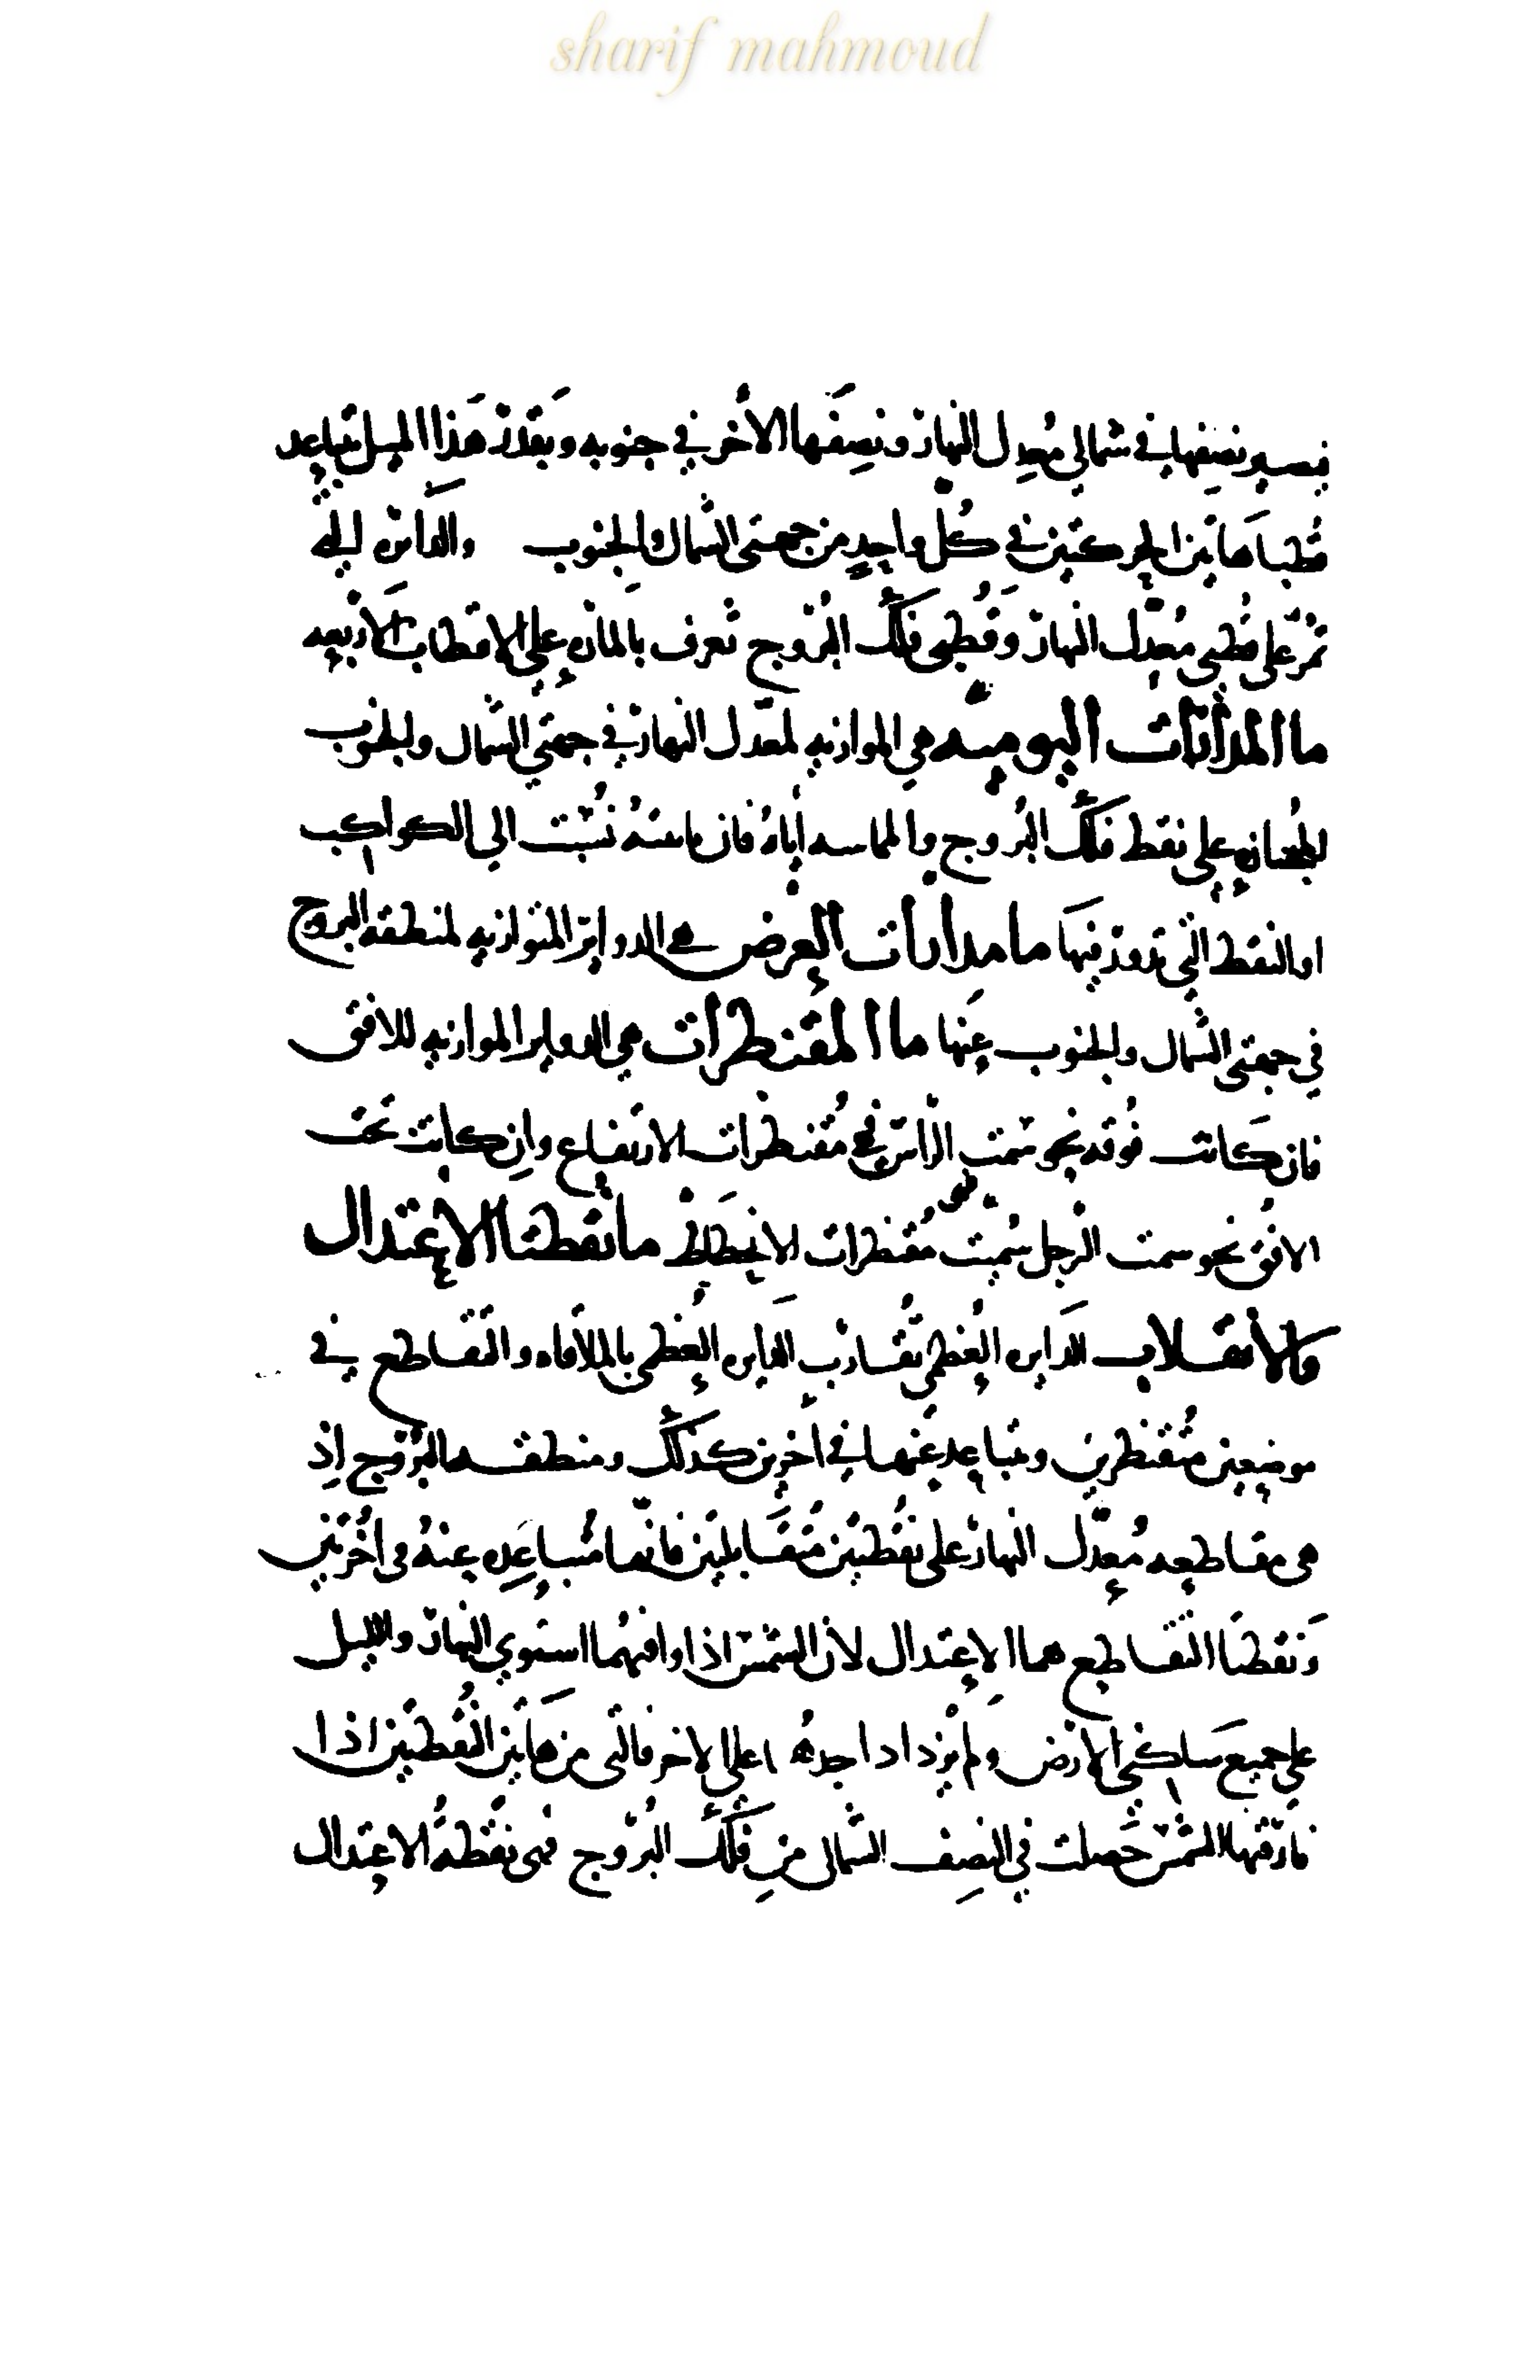 sharif mahmoud
فيصير نصفها في شمالي مُعدِل النهار ونصِفَها الأخر في جنوبه وَبقدر هَذا الميل تباعد
قُطبا هاتين الحركتين في كُل واحدٍ من جهتى الشمال والجنوب والدائره التي
تمُرّ على قُطبى مُعدّل النهار وَقُطبى فلَك البُروج تعرف بالمارّه على الاقطاب الاربعه
ما المدارات اليوميه هي الموازيه لمعدّل النهار في جهتي الشمال والجنوب
المجتازه على نقط فلَك البُروج والمماسه اياهُ فان ماسته نُسبت الي الكواكب
او النقط التي تدور فيهَا ما مدارات العرض هي الدواير المتوازيه لمنطقه البروج
في جهتى الشمال والجنوب عنها ما المقنطرات هي الدواير الموازيه للافق
فان كَانت فُوقه نحو سمت الراس فهي مُقنطرات الارتفاع وان كانت تحَت
الافُق نحو سمت الرجل سُميت مُقنطرات الانحطَاط ما نقطتا الاعتدال
وَالانقلاب الدَايره العُظمى تُقارب الدايره العُظمى بالملاقاه والتقاطع في
موضعين مُتقنطرين وتباعد عَنها في أخرين كذلَك ومنطقه البُرُوج اذِ
هى مقاطعه مُعدّل النهار على نقُطتين مُتقَابلتين فانها مُتباعَده عنهُ فى اخُرَتين
وَنقطتا التقاطع هما الاعتدال لان الشمس اذا وافتهُما استوي النهار والليل
على جميعَ ساكني الارض وَلم يزداد احدهُ اعلى الاخر فالتى من هَاتين النُقطتَين اذا
فارقتها الشمس حَصلت في النصِف الشمالى منِ فلَك البُرُوج فهى نقُطهُ الاعتدال